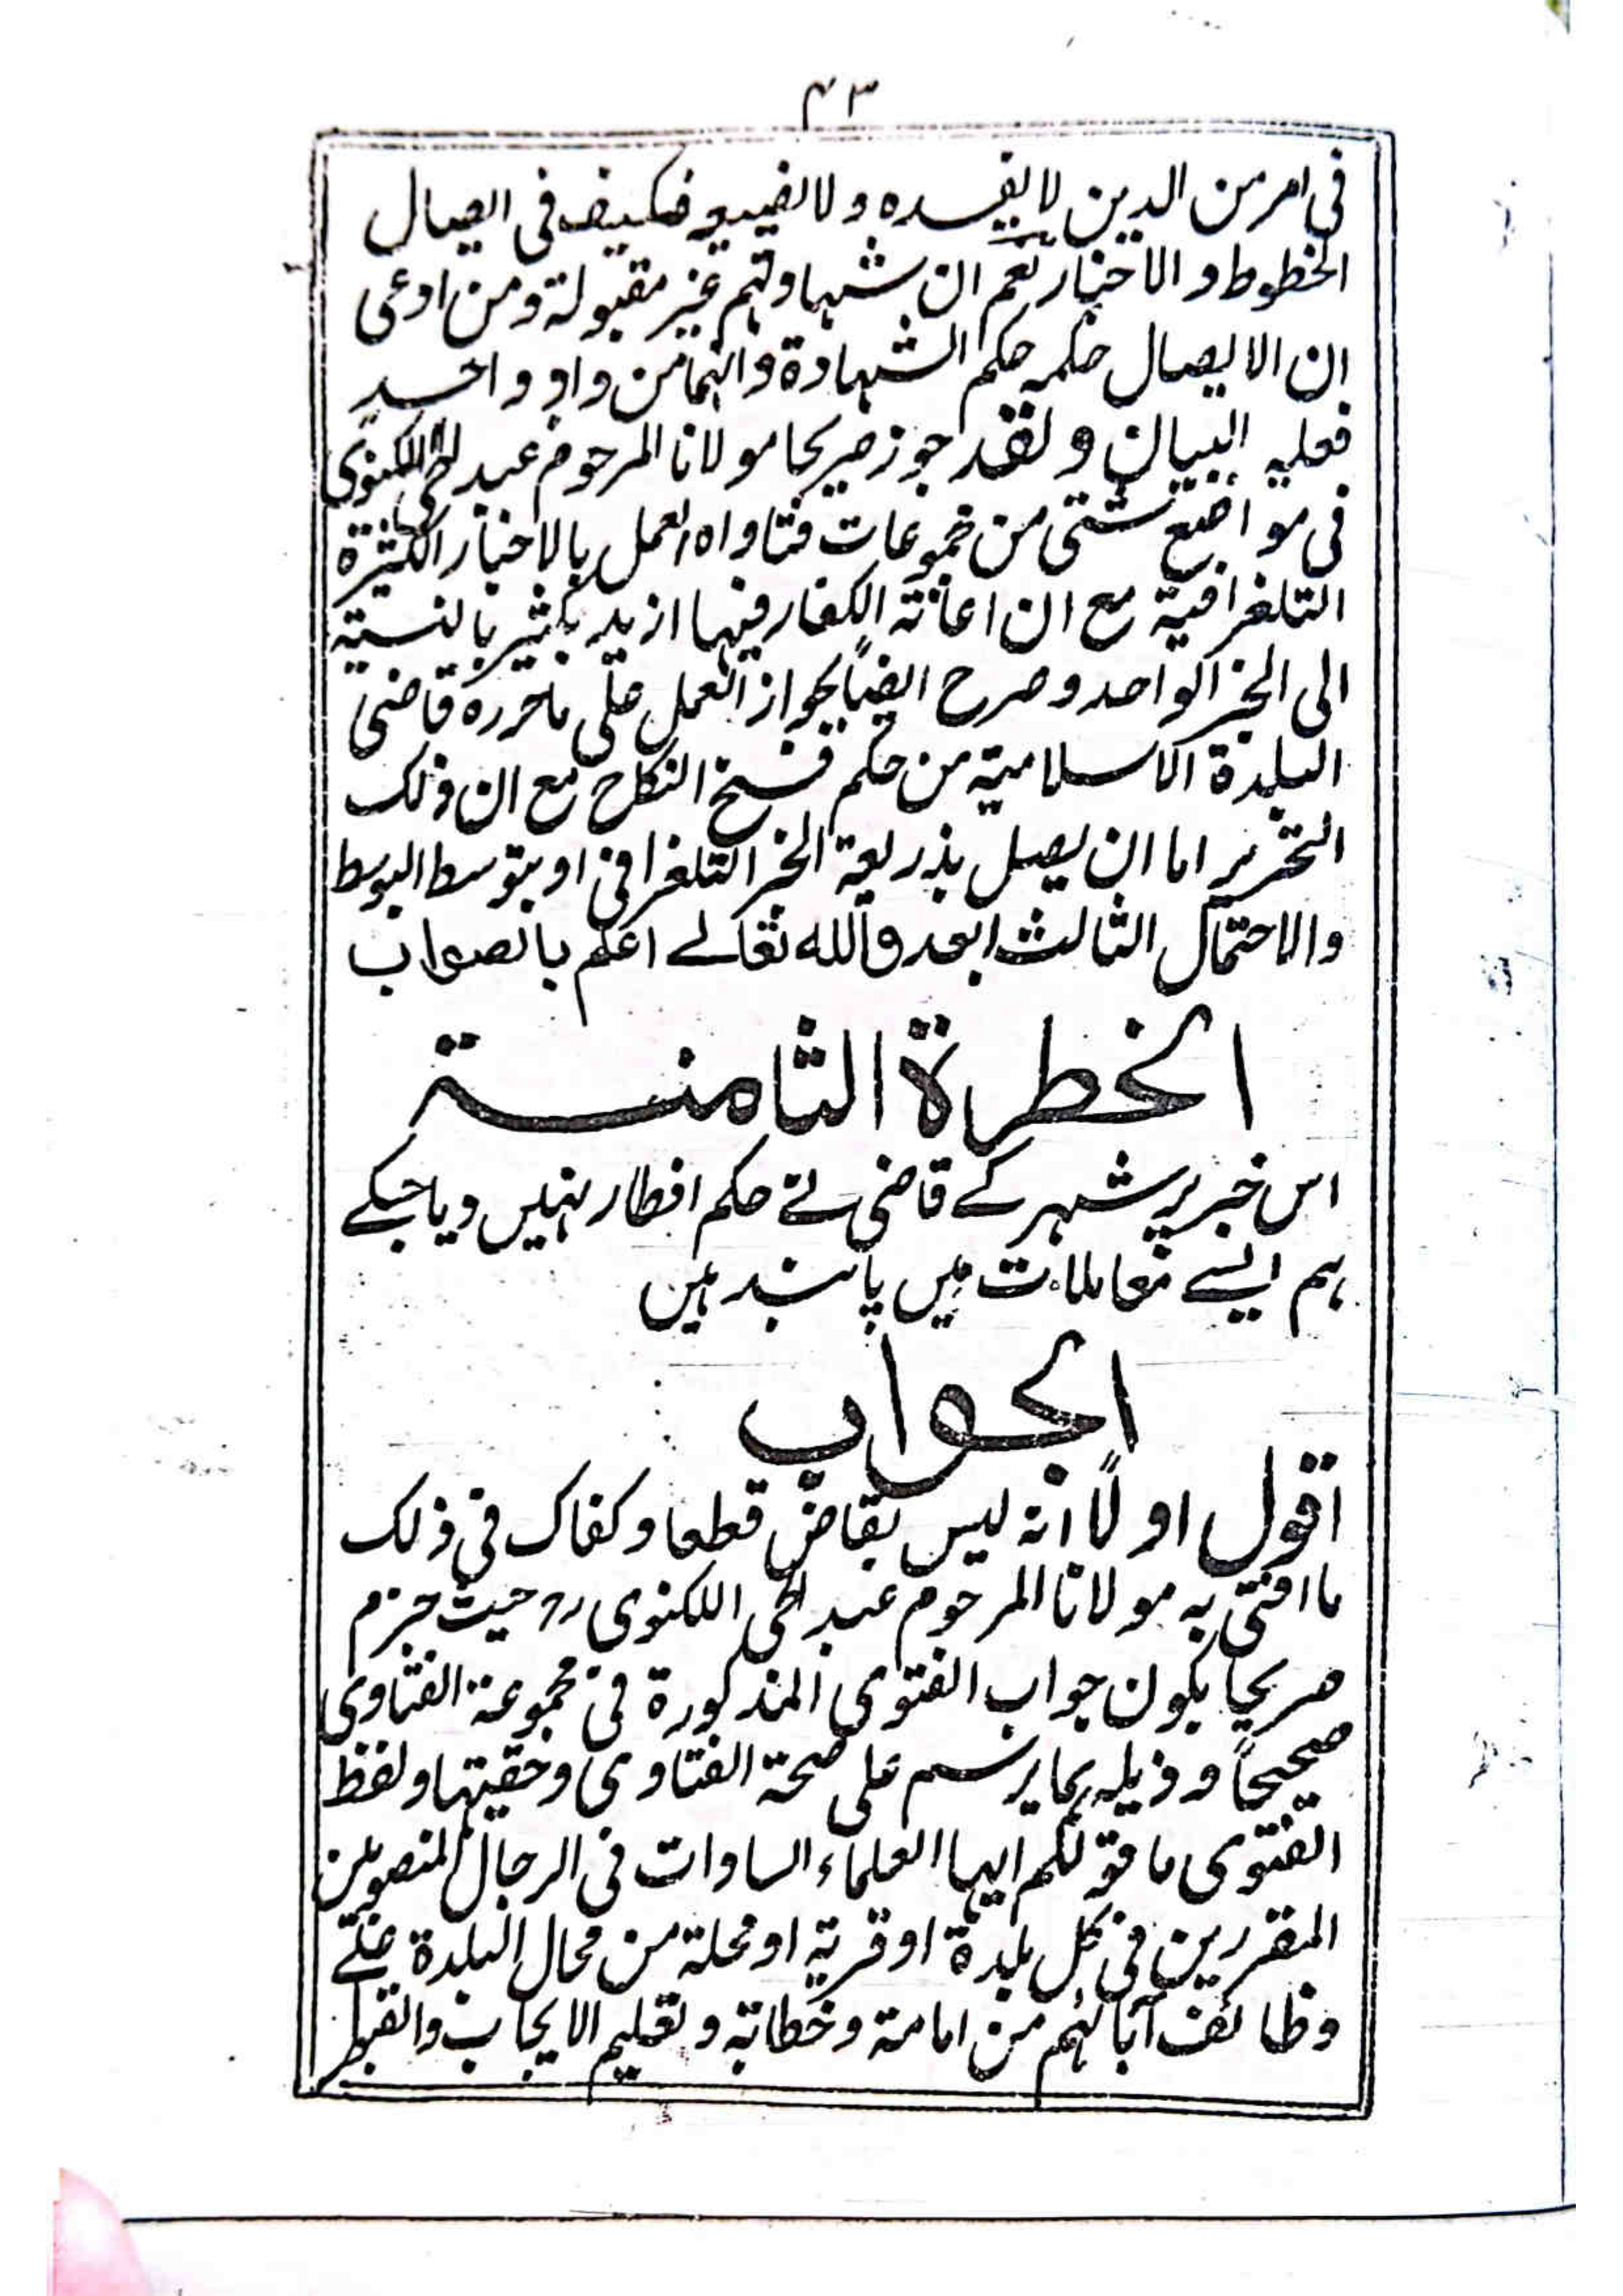 ۴۳
فی امر من الدین لا یفسده ولا یضیعه فکیف فی ایصال
الخطوط والاخبار نعم ان شہادتہم غیر مقبولۃ ومن ادعی
ان الایصال حکمہ حکم الشہادۃ وانہما من واد واحد
فعلیہ البیان ولقد جوز صریحا مولانا المرحوم عبد الحی اللکنوی
فی مواضع شتی من مجموعات فتاواہ العمل بالاخبار الکثیرۃ
التلغرافیۃ مع ان اعانۃ الکفار فیہا ازید بکثیر بالنسبۃ
الی الخبر الواحد وصرح ایضاً بجواز العمل علی ما حررہ قاضی
البلدۃ الاسلامیۃ من حکم فسخ النکاح مع ان ذلک
التحریر اما ان یصل بذریعۃ الخبر التلغرافی او بتوسط البوسط
والاحتمال الثالث ابعد واللہ تعالے اعلم بالصواب
الخطرۃ الثامنۃ
اس خبر پر شہر کے قاضی نے حکم افطار نہیں دیا جسکے
ہم ایسے معاملات میں پابند ہیں
الجواب
اقول اولاً انہ لیس بقاض قطعا وکفاک فی ذلک
ما افتی بہ مولانا المرحوم عبد الحی اللکنوی رح حیث جزم
صریحا بکون جواب الفتوی المذکورۃ فی مجموعۃ الفتاوی
صحیحاً وذیلہ بما یرسم علی صحۃ الفتاوی وحقیتہا ولفظ
الفتوی ما قولکم ایہا العلماء السادات فی الرجال المنصوبین
المقررین فی کل بلدۃ او قریۃ او محلۃ من محال البلدۃ علے
وظائف آبائہم من امامۃ وخطابۃ وتعلیم الایجاب والقبول